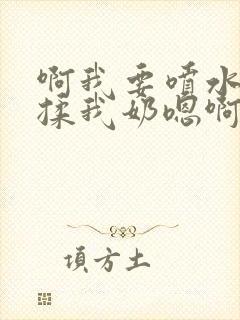 啊我要喷水
揉我奶嗯啊
項方土